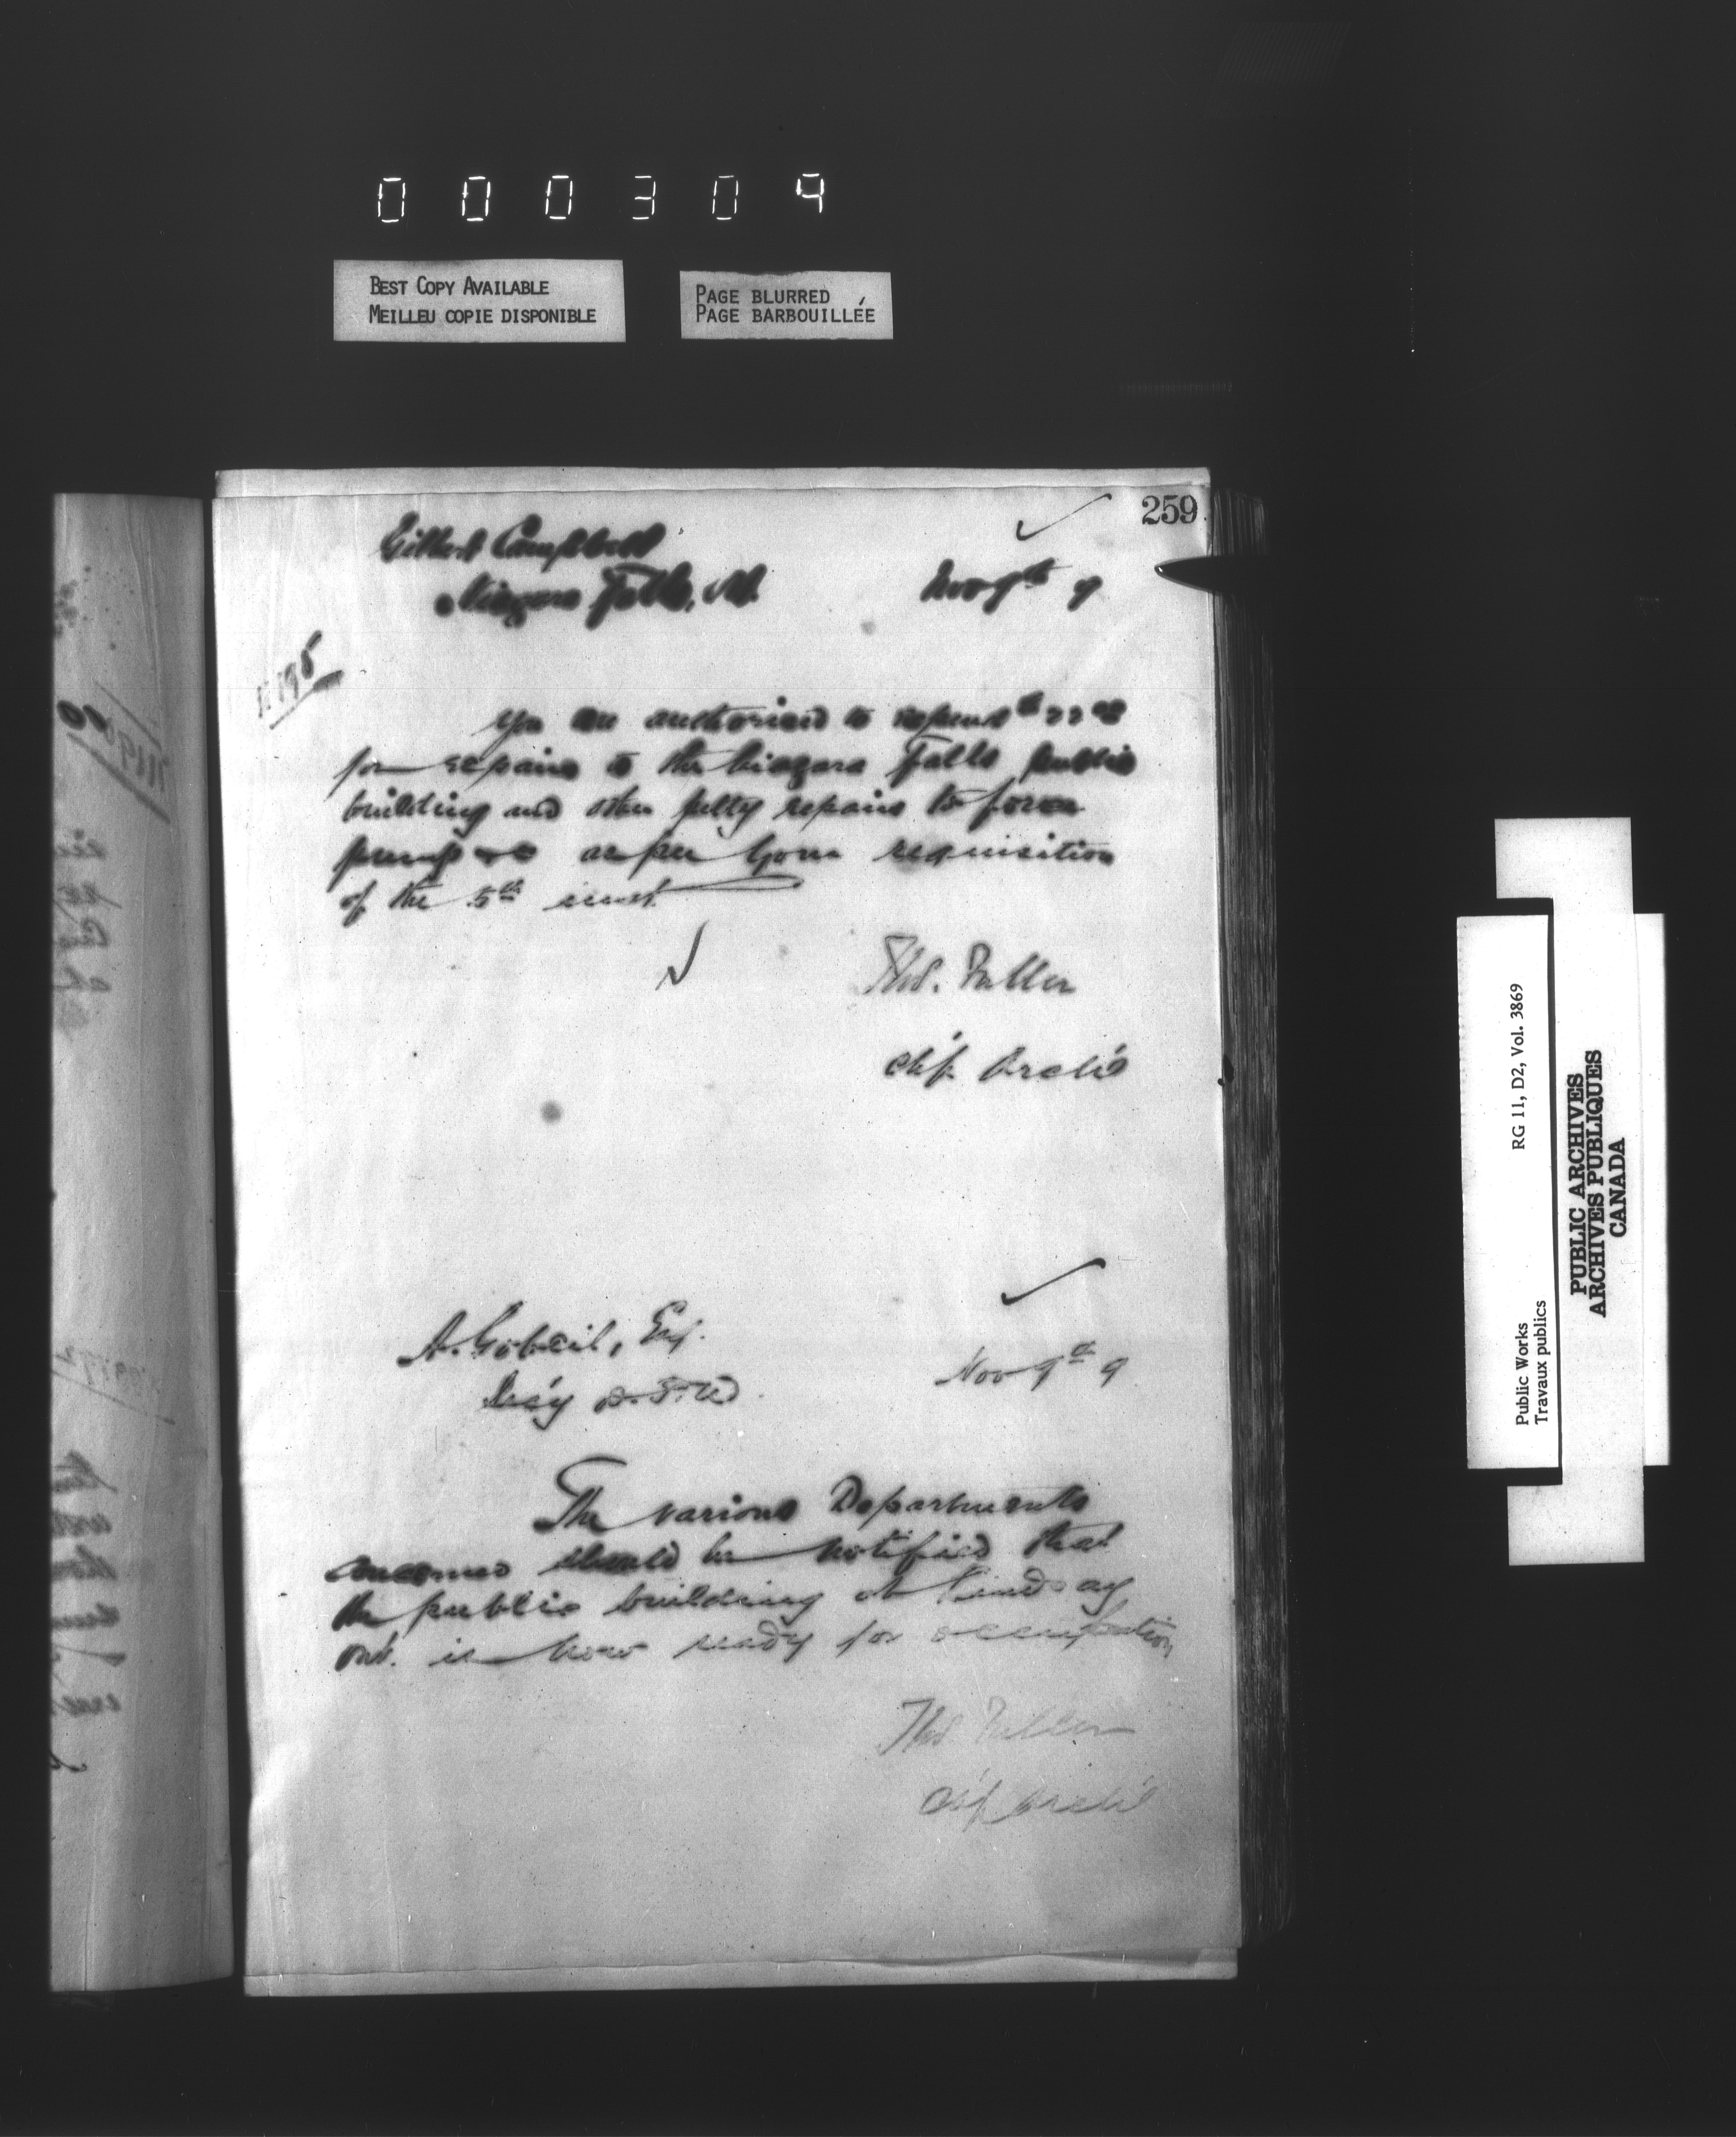 000304
BEST COPY AVAILABLE
MEILLEU COPIE DISPONIBLE
PAGE BLURRED
PAGE BARBOUILLÉE
259
Gilbert Campbell
Niagara Falls,
Nov 9th 9
You are authorised to expend
for repairs to the Niagara Falls public
building and other petty repairs to force
pump as per your requisition
of the 5th inst.
Thos. Fuller
Chf. Archt
A. Gobeil, Esq.
Sec'y
Nov 9th 9
The various Departments
concerned should be notified that
the public building at Lindsay
Ont. is now ready for occupation
Thos. Fuller
Chf Archt
Public Works
Travaux publics
RG 11, D2, Vol. 3869
PUBLIC ARCHIVES
ARCHIVES PUBLIQUES
CANADA